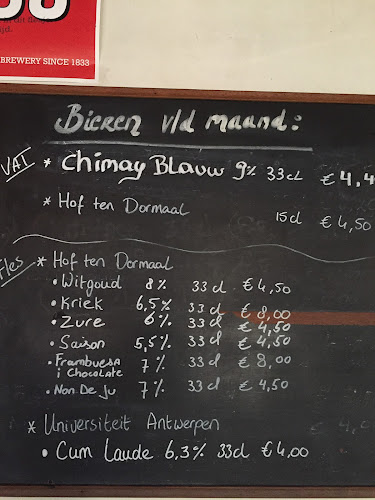 BREWERY SINCE 1833
Bieren v/d maand:
VAT * Chimay Blauw 9% 33cl € 4,4
* Hof ten Dormaal 15cl € 4,50
Fles * Hof ten Dormaal
• Witgoud 8% 33cl € 4,50
• Kriek 6,5% 33cl € 8,00
• Zure 6% 33cl € 4,50
• Saison 5,5% 33cl € 4,50
• Frambuesa i Chocolate 7% 33cl € 8,00
• Non De Ju 7% 33cl € 4,50
* Universiteit Antwerpen
• Cum Laude 6,3% 33cl €4,00